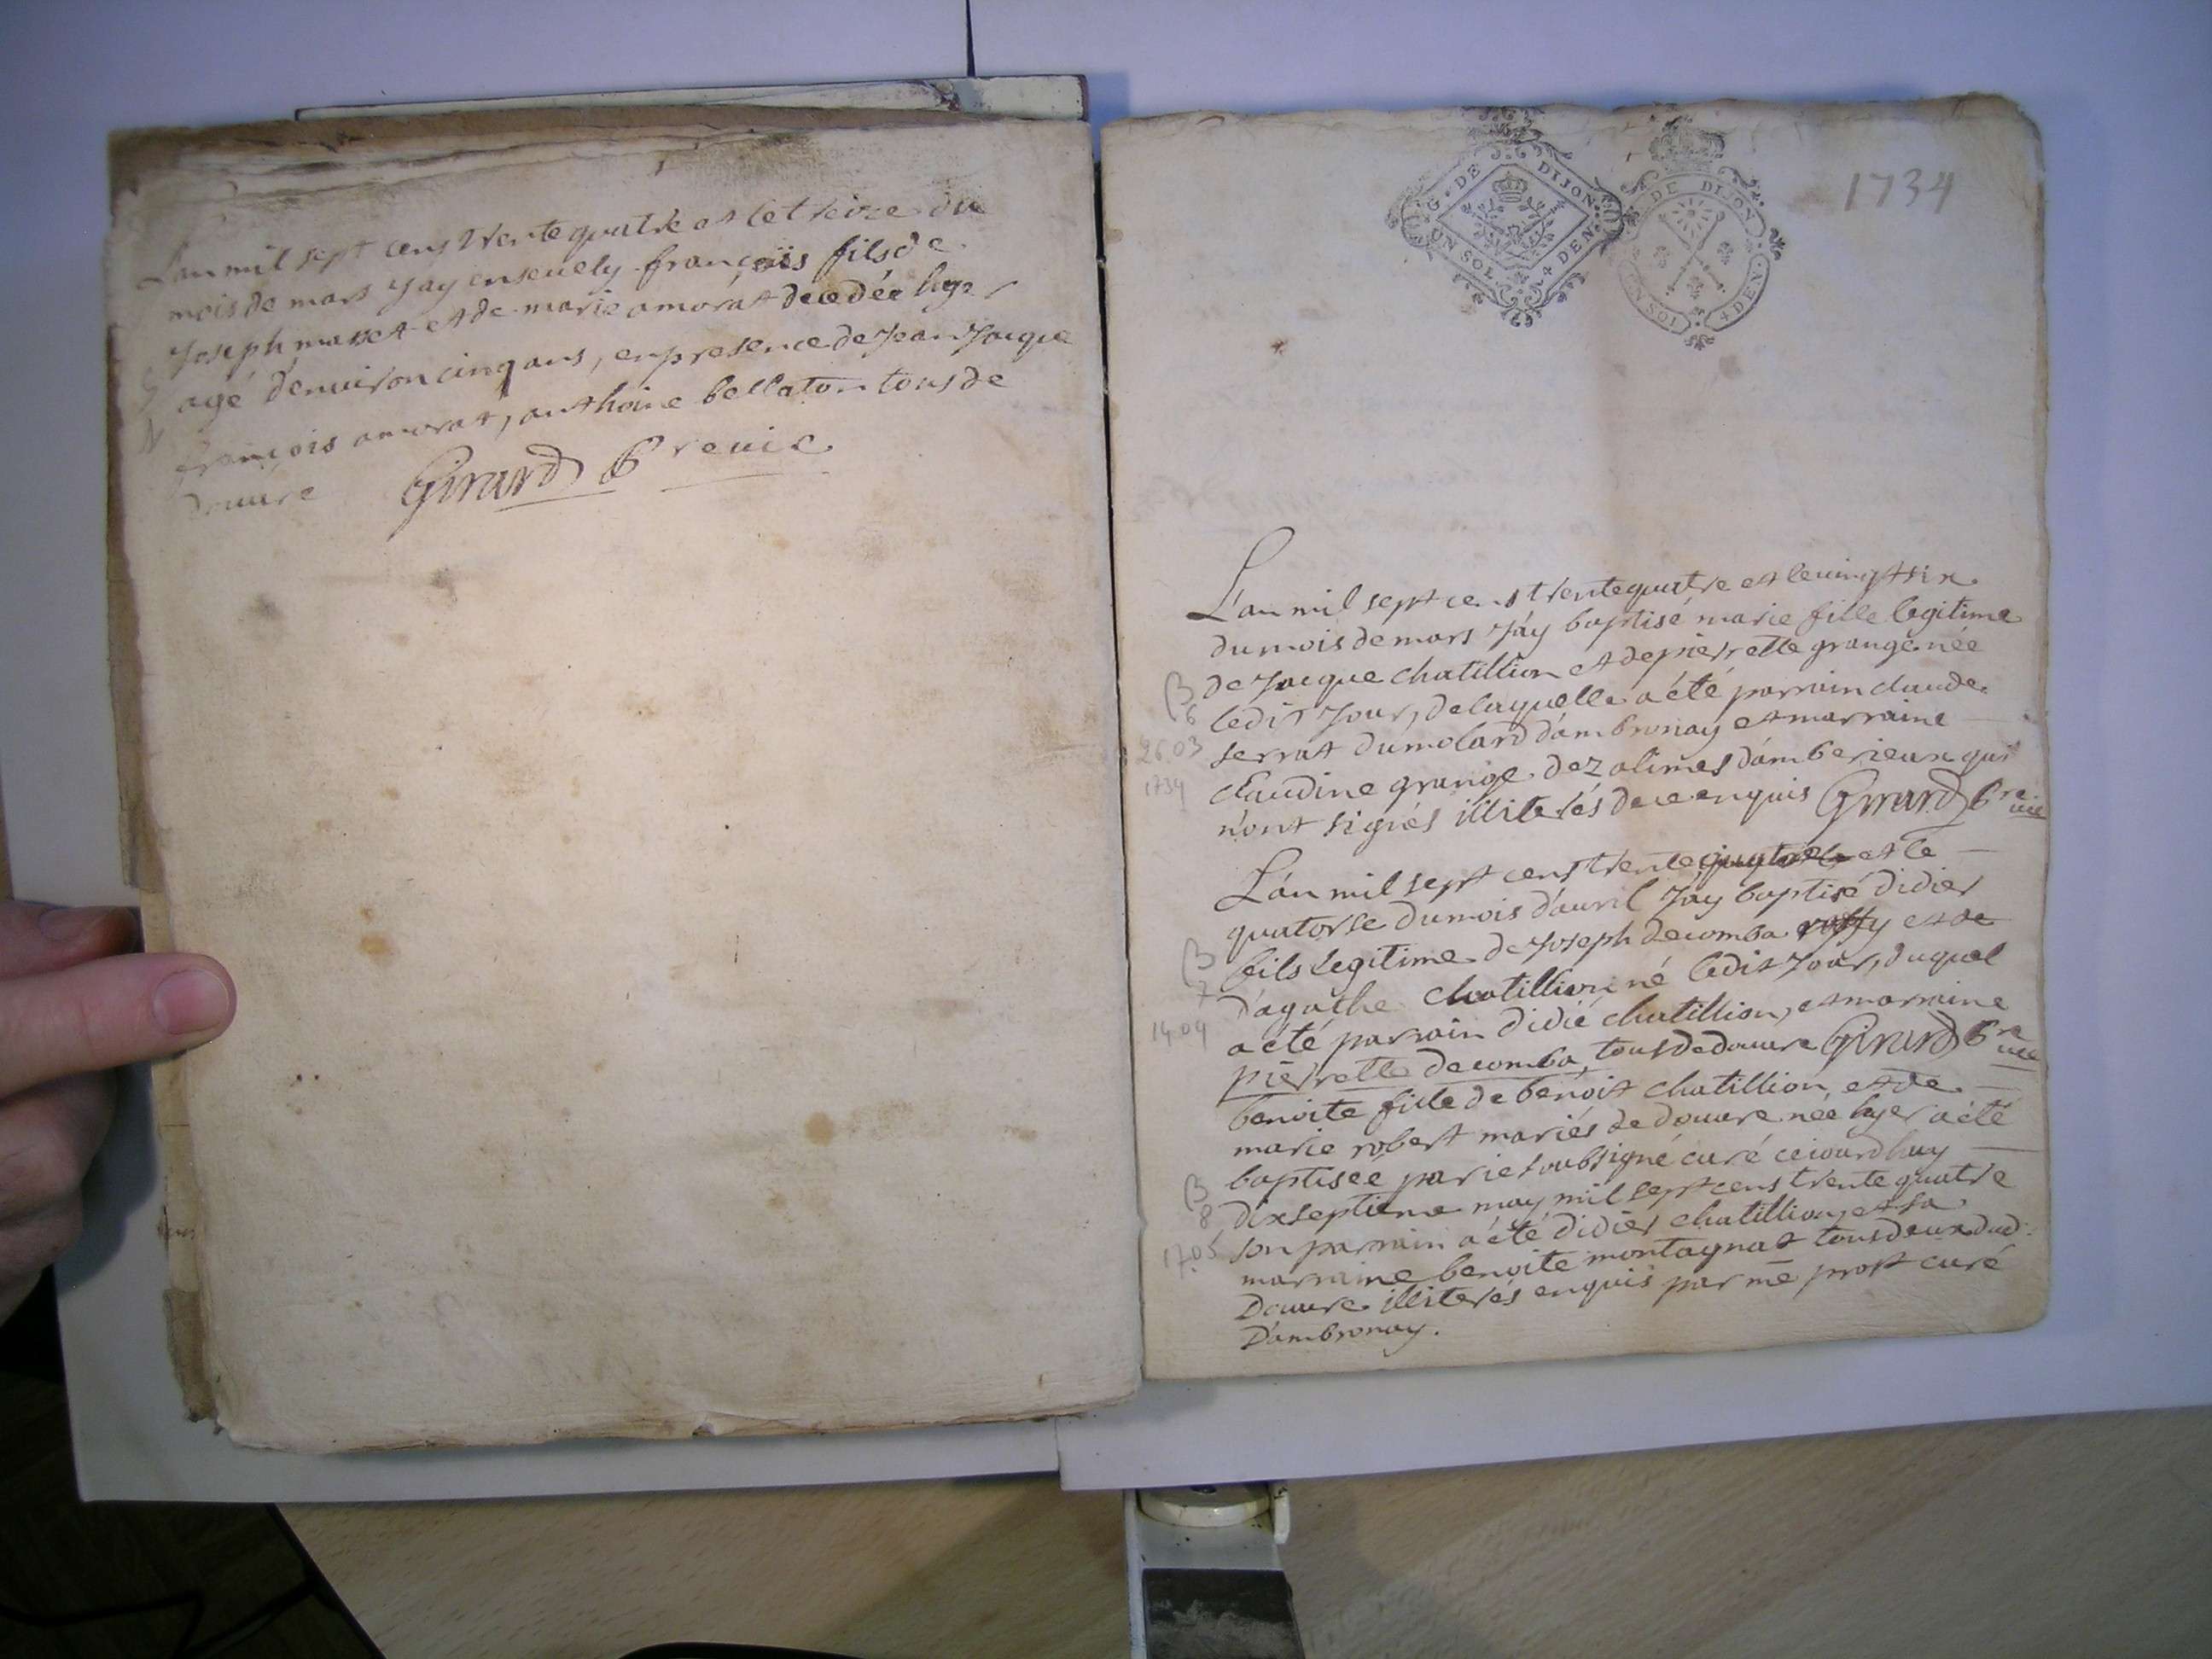 L'an mil sept cens trente quatre et le treize du
mois de mars J'ay ensevely françois fils de
Joseph masset et de marie amorat decedée hyer
agé d'environ cinq ans, en presence de Jean Jacque
françois amorat, anthoine bellaton tous de
douvre Girard Pre vic
1734
G. DE DIJON
UN SOL 4 DEN.
G. DE DIJON
UN SOL 4 DEN.
L'an mil sept cens trente quatre et le vingt six
du mois de mars J'ay baptisé marie fille legitime
de Jacque chatillion et de pierrette grange née
ledit Jour, de laquelle a été parrain claude
serrat du molard d'ambronay et marraine
claudine grange dez alimes d'amberieux qui
n'ont signés illiterés de ce enquis Girard Pre vic
B
6
26.03
1734
L'an mil sept cens trente quatre et le
quatorse du mois d'avril J'ay baptisé didier
fils legitime de Joseph decomba et de
d'agathe chatillion né ledit Jour, duquel
a été parrain didié chatillion, et marraine
pierrette decomba, tous de douvre Girard Pre vic
B
7
14.04
benoite fille de benoit chatillion et de
marie robert mariés de douvre née hyer a été
baptisée par je soubsigné curé cejourdhuy
dixseptieme may mil sept cens trente quatre
son parrain a été didier chatillion, et sa
marraine benoite montagnat tous deux dud.
Douvre illiterés enquis par me prost curé
D'ambronay.
B
8
17.05